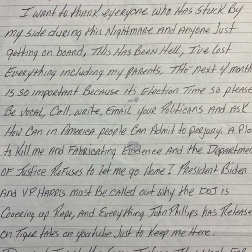 I want to thank everyone who has stuck by
my side during this Nightmare and anyone just
getting on board, This Has Been Hell, I've lost
Everything including my parents. The next 4 month
is so important Because its Election Time so please
Be vocal, Call, write, Email your Politicans and Ask
How Can in America people Can Admit to perjury, A Plo
to kill me And Fabricating Evidence And the Departmen
of Justice Refuses to let me go Home! President Biden
And VP Harris must be called out why the DOJ is
Covering up Rape, and Everything John Phillips has Release
on Tiger tales on youtube Just to Keep me Here.